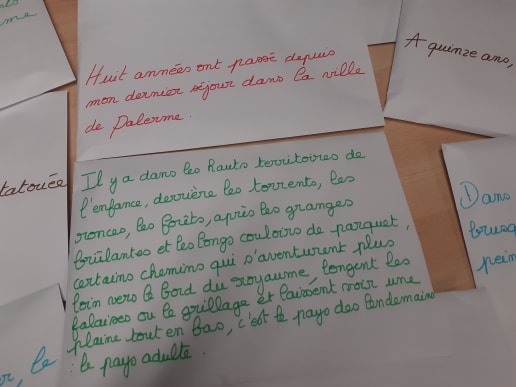 Huit années ont passé depuis
mon dernier séjour dans la ville
de Palerme.
A quinze ans,
tatouée
Il y a dans les hauts territoires de
l'enfance, derrière les torrents, les
ronces, les forêts, après les granges
brûlantes et les longs couloirs de parquet,
certains chemins qui s'aventurent plus
loin vers le bord du royaume, longent les
falaises ou le grillage et laissent voir une
plaine tout en bas, c'est le pays des lendemains
: le pays adulte.
Dans
brusq
pein
, le